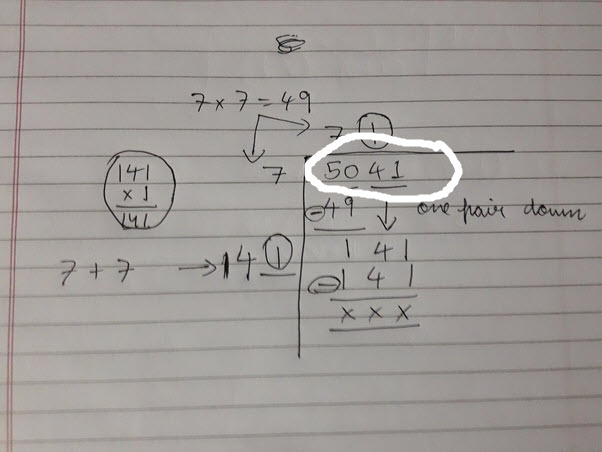 7 × 7 = 49
7 1
7 50 41
141
× 1
141
- 49 one pair down
1 41
7 + 7 → 14 1
- 1 4 1
x x x